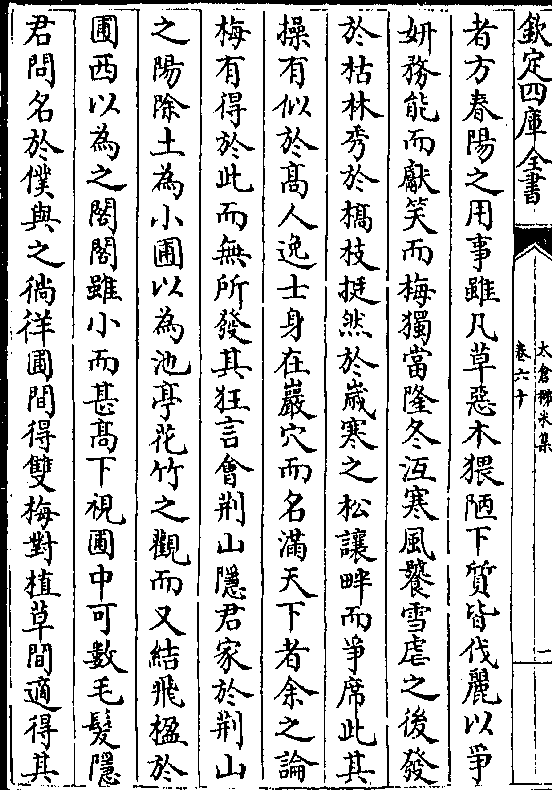 欽定四庫全書
太倉稊米集
卷六十
二
者方春陽之用事雖凡草惡木猥陋下質皆伐麗以爭
妍務能而獻笑而梅獨當隆冬冱寒風饕雪虐之後發
於枯林秀於槁枝挺然於歲寒之松讓畔而爭席此其
操有似於髙人逸士身在巖穴而名滿天下者余之論
梅有得於此而無所發其狂言㑹荆山隱君家於荆山
之陽除土為小圃以為池亭花竹之觀而又結飛楹於
圃西以為之閣閣雖小而甚髙下視圃中可數毛髮隱
君問名於僕與之徜徉圃間得雙梅對植草間適得其